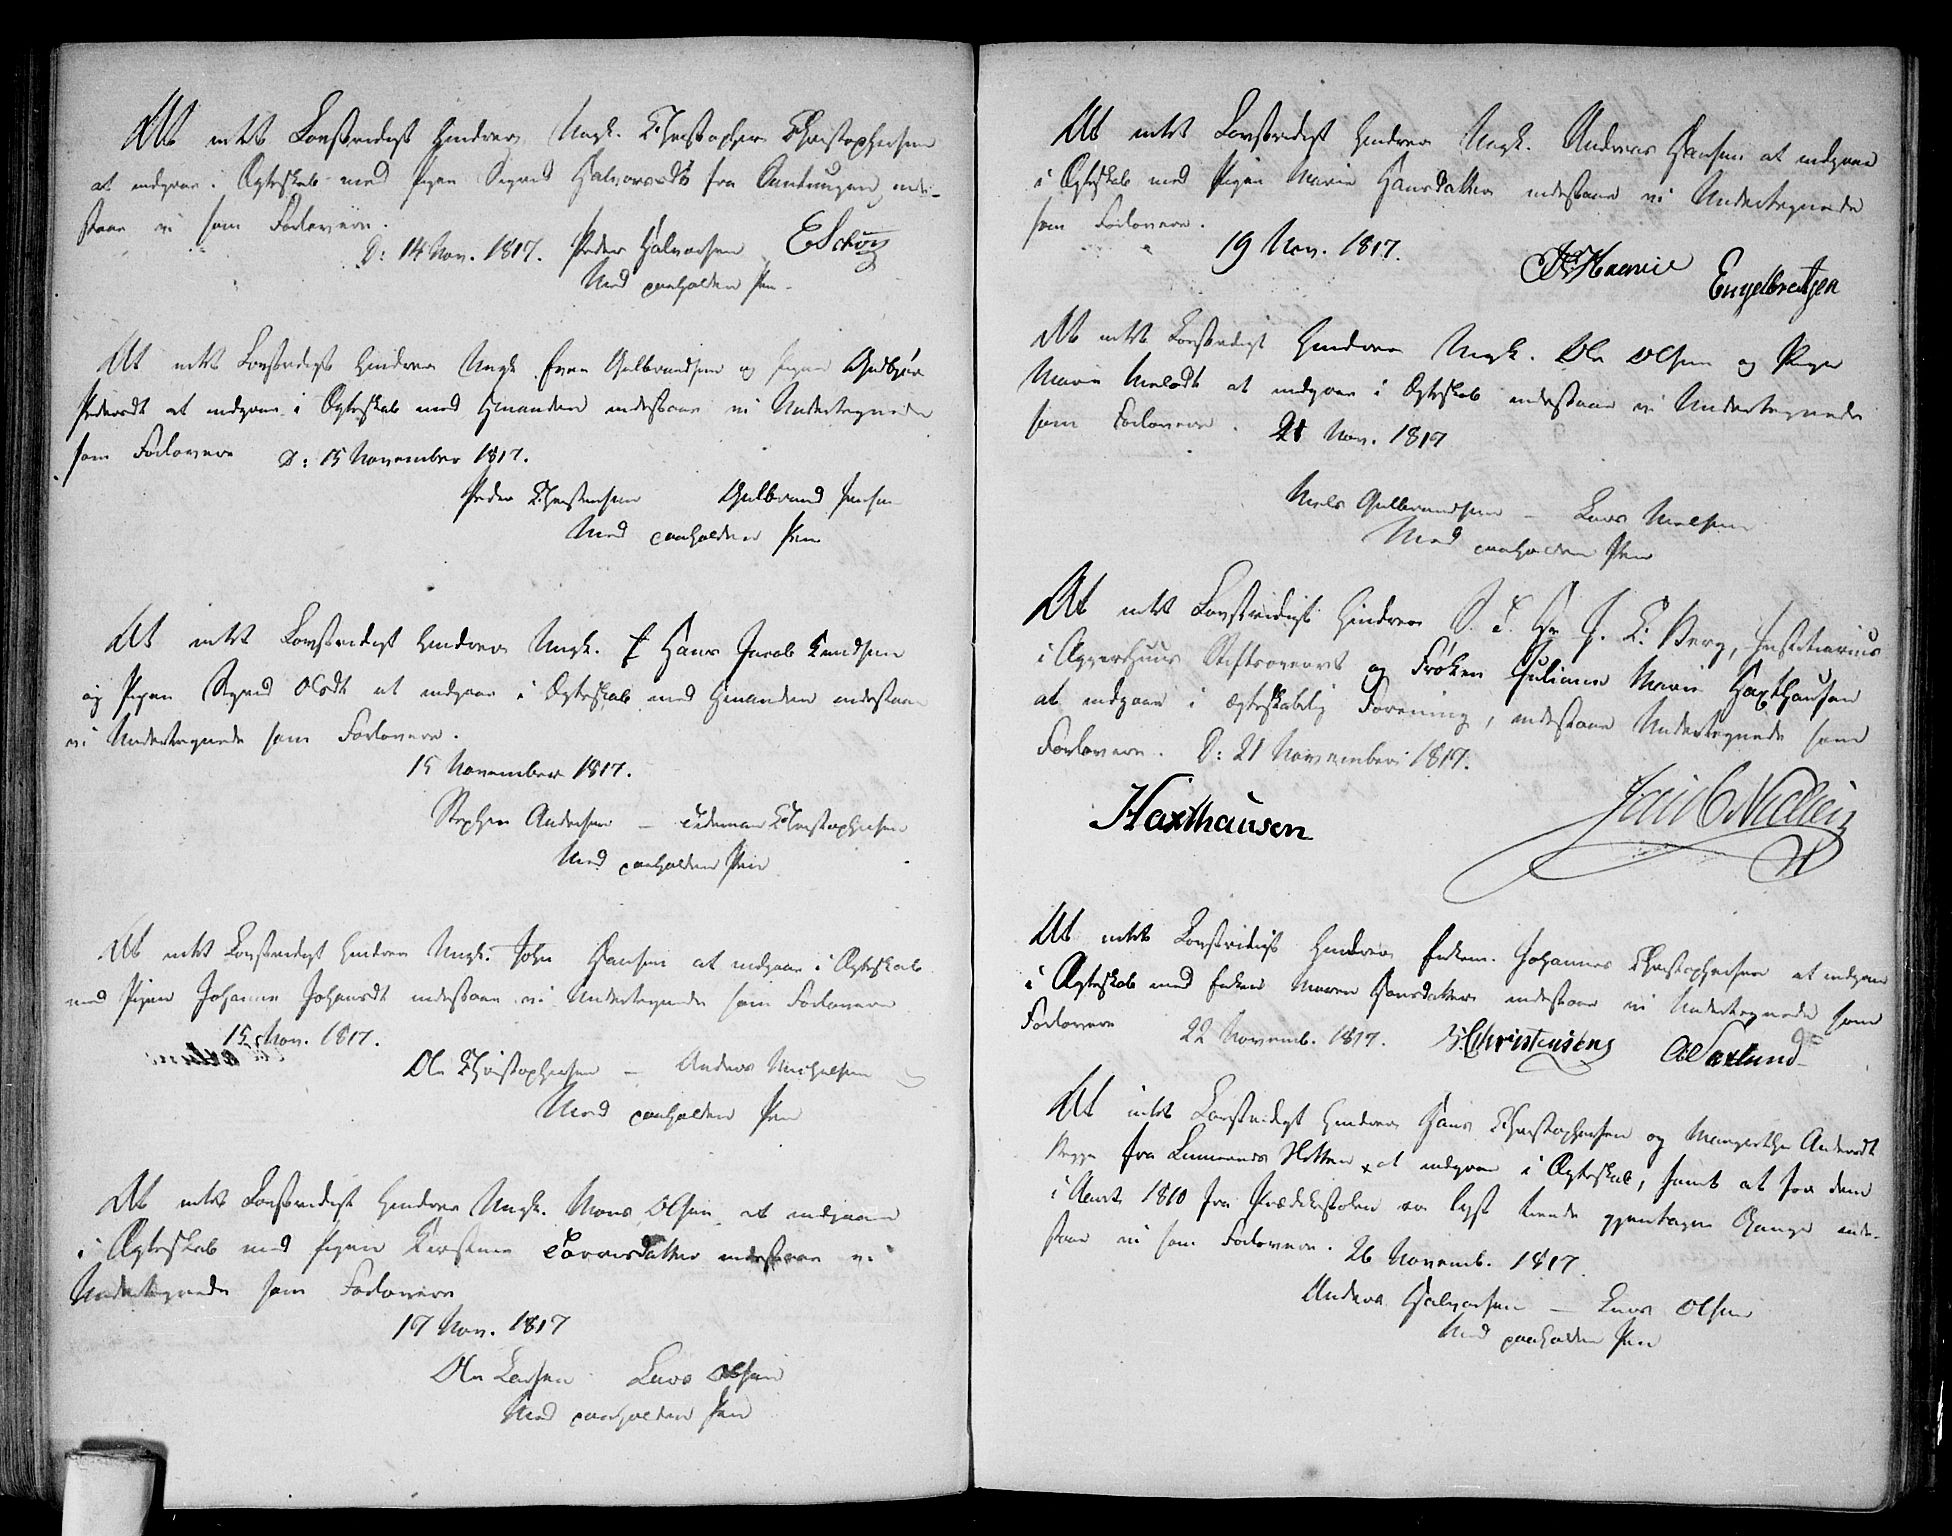 At intet Lovstridigt hindrer Ungk. Christopher Christophersen
at indgaae i Ægteskab med Pigen Sigrid Halvorsdt fra inde-
staae vi som Forlovere.
D: 14 Nov. 1817. Peder Halvorsen ESchöy
Med paaholden Pen.
At intet Lovstridigt hindrer Ungk. Even Gulbrandsen og Pigen Gudbjør
Pedersdt at indgaae i Ægteskab med hinanden indestaae vi Undertegnede
som Forlovere D: 15 November 1817.
Peder Christensen Gulbrand Jensen
Med paaholden Pen
At intet Lovstridigt hindrer Ungk. Hans Jacob Knudsen
og Pigen Sigrid Olsdt at indgaae i Ægteskab med hinanden indestaae
vi Undertegnede som Forlovere.
15 November 1817.
Stephen Andersen – Christophersen
Med paaholden Pen
At intet Lovstridigt hindrer Ungk. John Hansen at indgaae i Ægteskab
med Pigen Johanne Johansdt indestaae vi Undertegnede som Forlovere
15 Nov. 1817.
Ole Christophersen – Anders Michelsen
Med paaholden Pen
At intet Lovstridigt hindrer Ungk. Mons Olsen at indgaae
i Ægteskab med Pigen Kirstine indestaae vi
Undertegnede som Forlovere
17 Nov. 1817
Ole Larsen Lars Olsen
Med paaholden Pen
At intet Lovstridigt hindrer Ungk. Andreas Hansen at indgaae
i Ægteskab med Pigen Marie Hansdatter indestaae vi Undertegnede
som Forlovere.
19 Nov. 1817.
Engelbretsen
At intet Lovstridigt hindrer Ungk. Ole Olsen og Pigen
Maren Nielsdt at indgaae i Ægteskab indestaae vi Undertegnede
som Forlovere. 21 Nov. 1817
Niels Gulbrandsen – Lars Nielsen
Med paaholden Pen
At intet Lovstridigt hindrer S. T. Hr J. C. Berg, Justitiarius
i Aggerhuus Stiftsoverret og Frøken Juliane Marie Haxthausen
at indgaae i ægteskabelig Forening, indestaae Undertegnede som
Forlovere. D: 21 November 1817.
Haxthausen Jacob Nielsen
At intet Lovstridigt hindrer Enkem. Johannes Christophersen at indgaae
i Ægteskab med Enken Maren Hansdatter indestaae vi Undertegnede som
Forlovere 22 Novemb. 1817. Christensen
At intet Lovstridigt hindrer Hans Christophersen og Margrethe Andersdt
Begge fra at indgaae i Ægteskab, samt at for dem
i Aaret 1810 fra Prædikestolen er lyst trende gjentagne Gange inde-
staae vi som Forlovere. 26 Novemb. 1817.
Anders Halvorsen – Lars Olsen
Med paaholden Pen